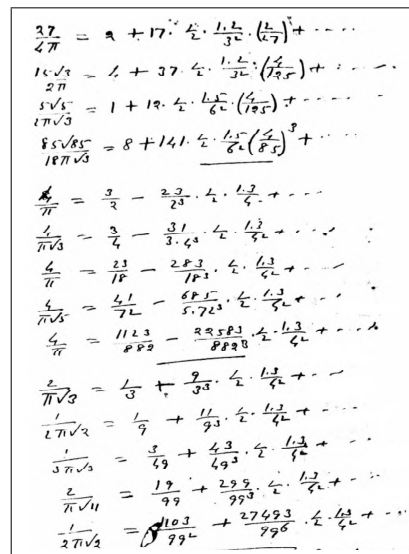 27/4π = 2 + 17· 1/2 · 1.2/3² · (2/27)³ + ····
15√3/2π = 4 + 37· 1/2 · 1.2/3² · (4/125) + ····
5√5/2π√3 = 1 + 12· 1/2 · 1.5/6² · (4/125) + ····
85√85/18π√3 = 8 + 141· 1/2 · 1.5/6² (4/85)³ + ···
4/π = 3/2 − 23/2³ · 1/2 · 1.3/4² + ···
4/π√3 = 3/4 − 31/3.4³ · 1/2 · 1.3/4² + ···
4/π = 23/18 − 283/18³ · 1/2 · 1.3/4² + ···
4/π√5 = 41/72 − 685/5.72³ · 1/2 · 1.3/4² + ···
4/π = 1123/882 − 22583/882³ · 1/2 · 1.3/4² + ···
2/π√3 = 1/3 + 9/3³ · 1/2 · 1.3/4² + ···
1/2π√2 = 1/9 + 11/9³ · 1/2 · 1.3/4² + ···
1/3π√3 = 3/49 + 43/49³ · 1/2 · 1.3/4² + ···
2/π√11 = 19/99 + 299/99³ · 1/2 · 1.3/4² + ···
1/2π√2 = 1103/99² + 27493/99⁶ · 1/2 · 1.3/4² + ···